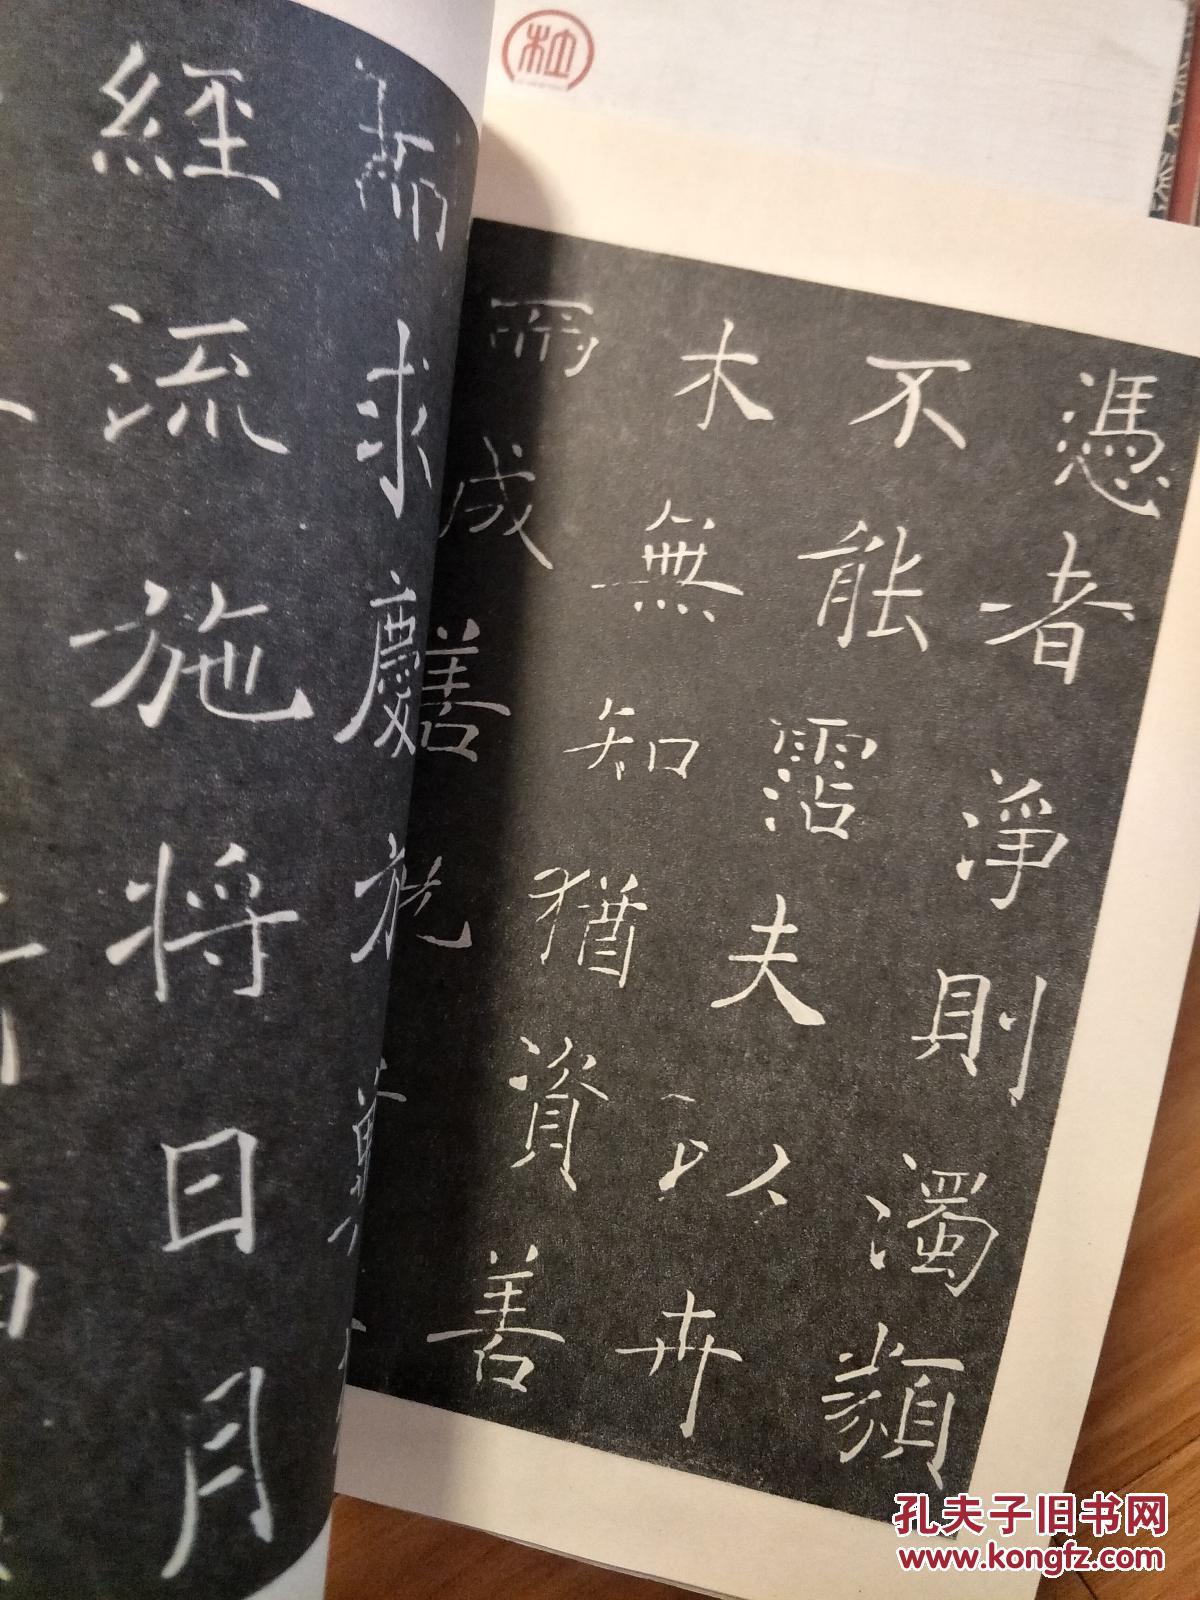 憑者淨則濁類
不能霑夫以卉
木無知猶資善
而成善
而求慶方
經流施將日月
孔夫子旧书网
www.kongfz.com